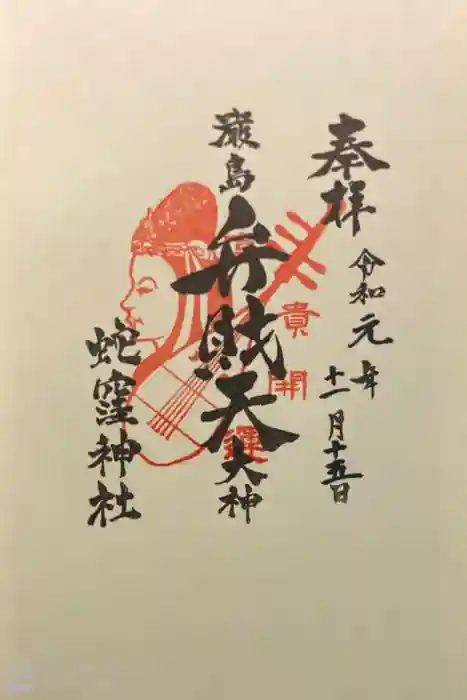 奉拝
令和元年
十一月十五日
巌島
弁財天
大神
貴
開
運
蛇窪神社